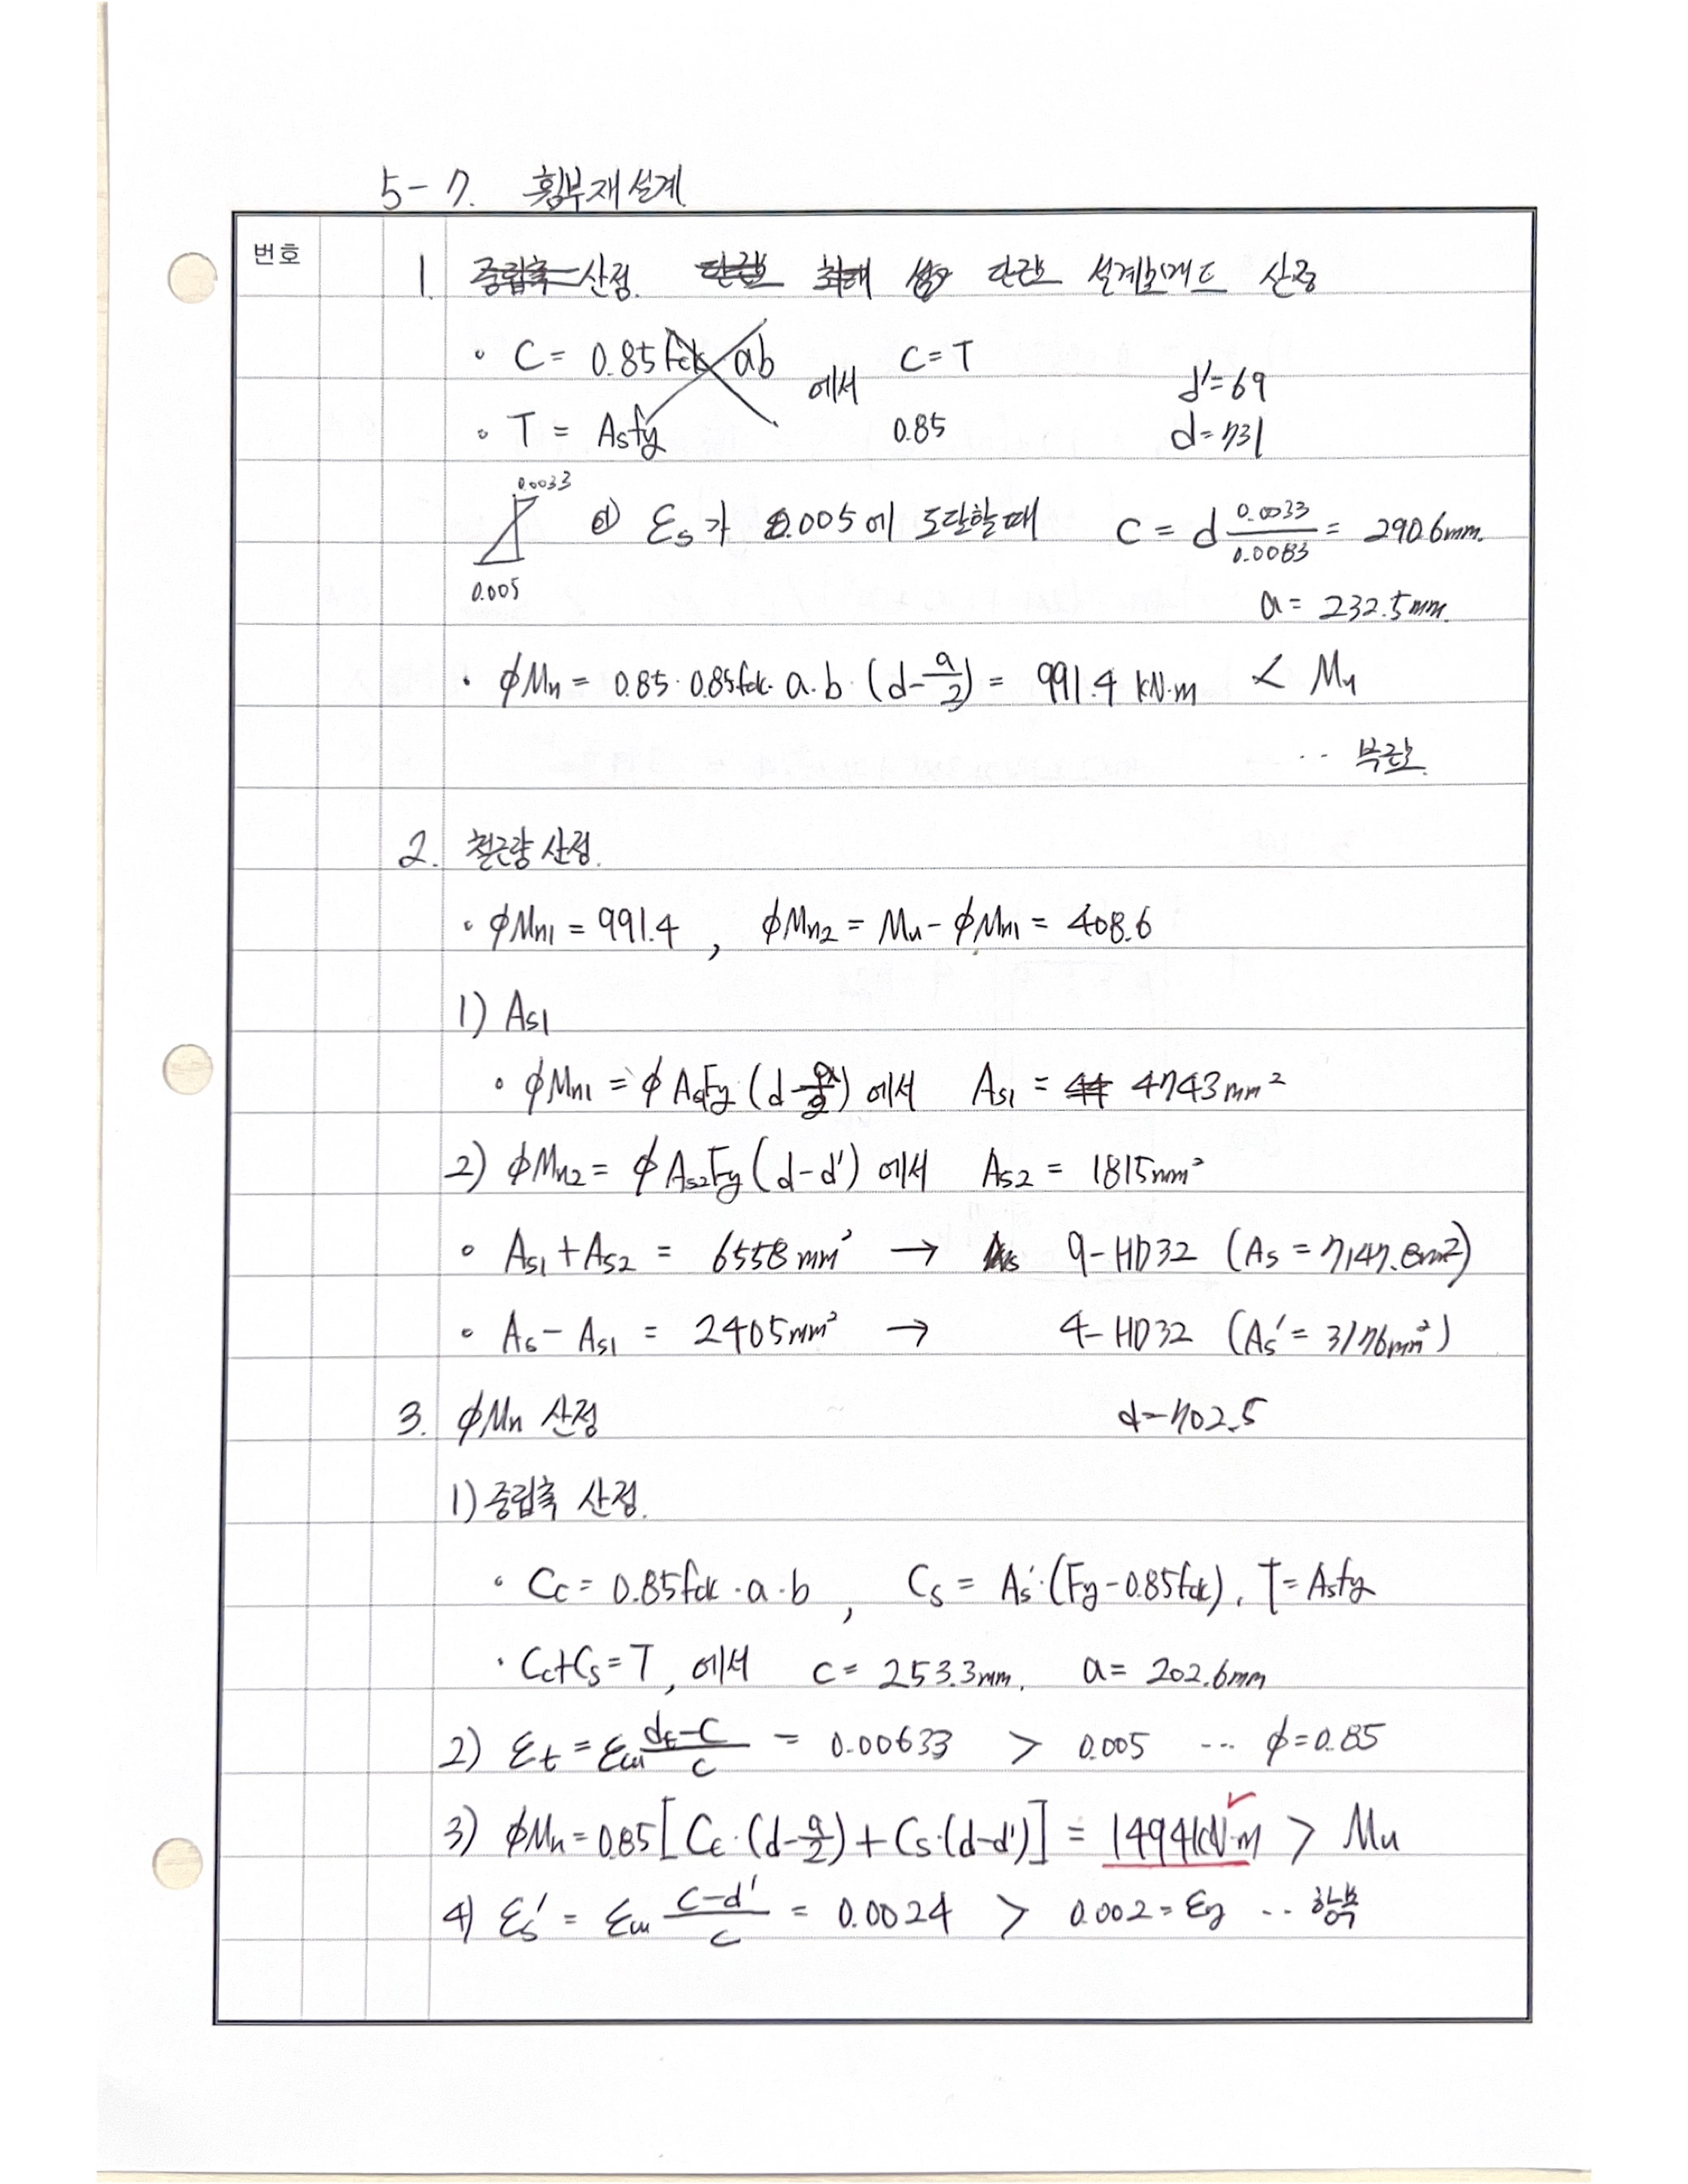 5-7. 휨부재 설계
번호
1. 중립축 산정. 단근보 최대 설 단근보 설계모멘트 산정
• C = 0.85fck ab 에서 C = T d' = 69
• T = Asfy 0.85 d = 731
0.0033
εs 가 0.005에 도달할 때 C = d 0.0033/0.0083 = 290.6mm.
0.005
a = 232.5mm.
• φMn = 0.85·0.85fck·a·b·(d-a/2) = 991.4 kN·m < Mu
·· 복근보.
2. 철근량 산정.
• φMn1 = 991.4 , φMn2 = Mu - φMn1 = 408.6
1) As1
• φMn1 = φAsFy(d-a/2) 에서 As1 = 44 4743mm²
2) φMn2 = φAs2Fy(d-d') 에서 As2 = 1815mm²
• As1 + As2 = 6558mm² → As 9-HD32 (As = 7147.8mm²)
• As - As1 = 2405mm² → 4-HD32 (As' = 3176mm²)
3. φMn 산정 d = 702.5
1) 중립축 산정.
• Cc = 0.85fck·a·b , Cs = As'·(Fy-0.85fck), T = Asfy
• Cc+Cs = T, 에서 c = 253.3mm, a = 202.6mm
2) εt = εcu dt-c/c = 0.00633 > 0.005 ··· φ = 0.85
3) φMn = 0.85[Cc·(d-a/2)+Cs·(d-d')] = 1494kN·m > Mu
4) εs' = εcu c-d'/c = 0.0024 > 0.002 = εy ·· 항복